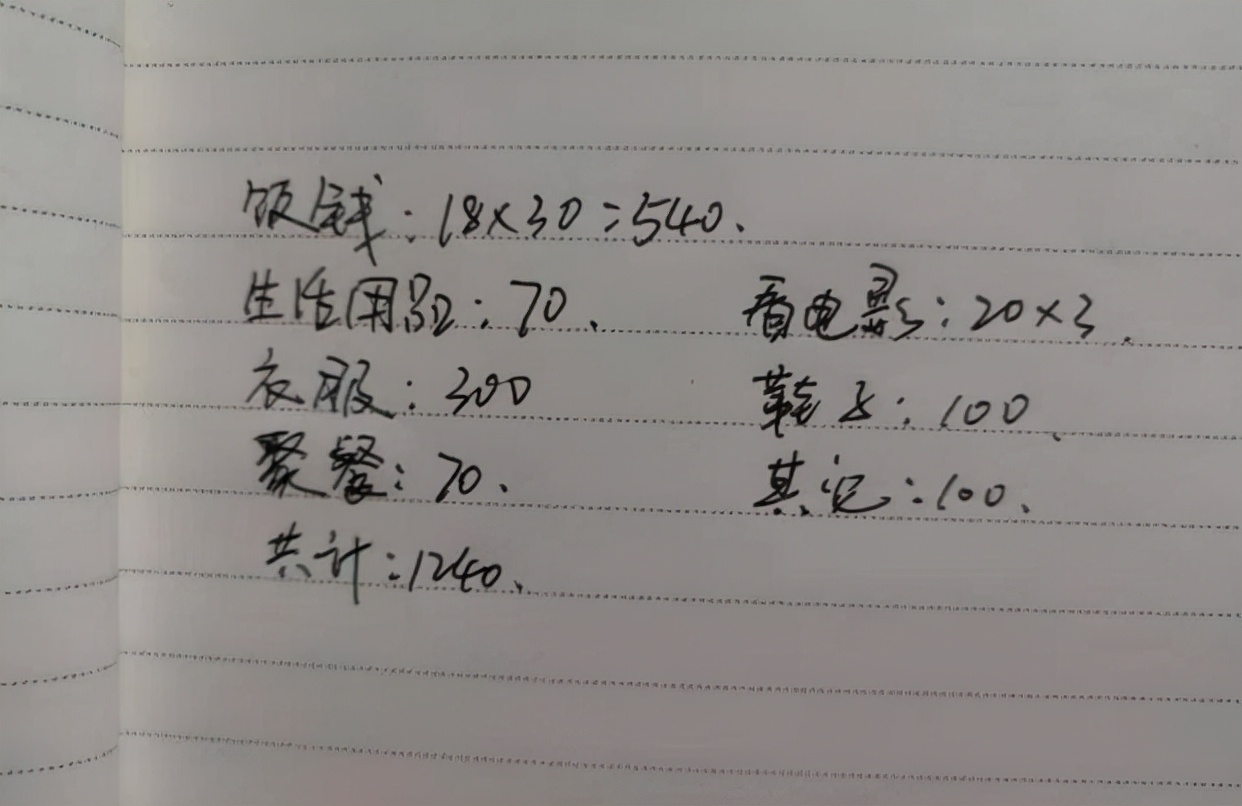 饭钱：18×30=540、
生活用品：70、 看电影：20×3、
衣服：300 鞋子：100、
聚餐：70、 其它：100、
共计：1240、